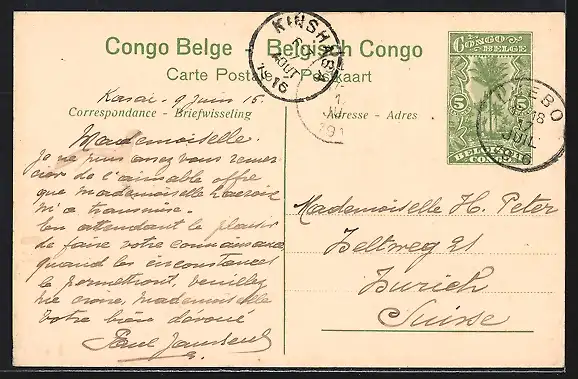 Congo Belge - Belgisch Congo
Carte Postale - Postkaart
Correspondance - Briefwisseling
Adresse - Adres
CONGO
BELGE
5
5
BELGISCH
CONGO
KINSHASA
AOUT
1916
18
JUIL
1916
Kasai. 9 Juin 16.
Mademoiselle.
Je ne puis assez vous remer-
cier de l'aimable offre
que Mademoiselle Lacroix
m'a transmise.
En attendant le plaisir
de faire votre connaissance,
quand les circonstances
le permettront, veuillez
me croire, Mademoiselle
Votre bien dévoué
Paul
Mademoiselle H. Peter
Zeltweg 21
Zurich
Suisse